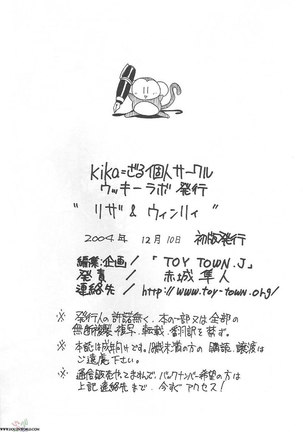 kika=ざる個人サークル
ウッキーラボ 発行
"リザ & ウィンリィ"
2004年 12月10日 初版発行
編集・企画／「TOY TOWN.J」
発責／赤城 隼人
連絡先／http://www.toy-town.org/
※ 発行人の許諾無く、本の一部又は全部の
無断複製、複写、転載、翻訳を禁ず。
※ 本誌は成年向けです。18歳未満の方の購読、譲渡は
ご遠慮下さい。
※ 通信販売もやってますんで、バックナンバー希望の方は
上記連絡先まで、今すぐアクセス！